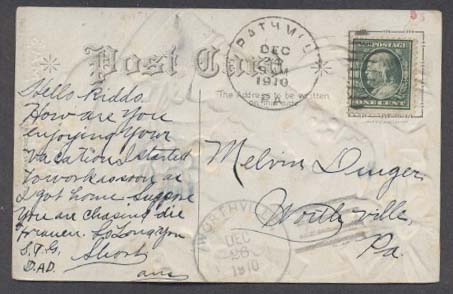 Post Card
"The Address to be written
on this side
DEC
1910
ONE CENT
Hello Kiddo
How are you
enjoying your
vacation I started
to work as soon as
I got home Suppose
You are chasing die
Frauen. So Long You
S.T.G.
D.A.D. Short
ans
Melvin Dinger
Worthville,
Pa.
WORTHVILLE
DEC
26
1910